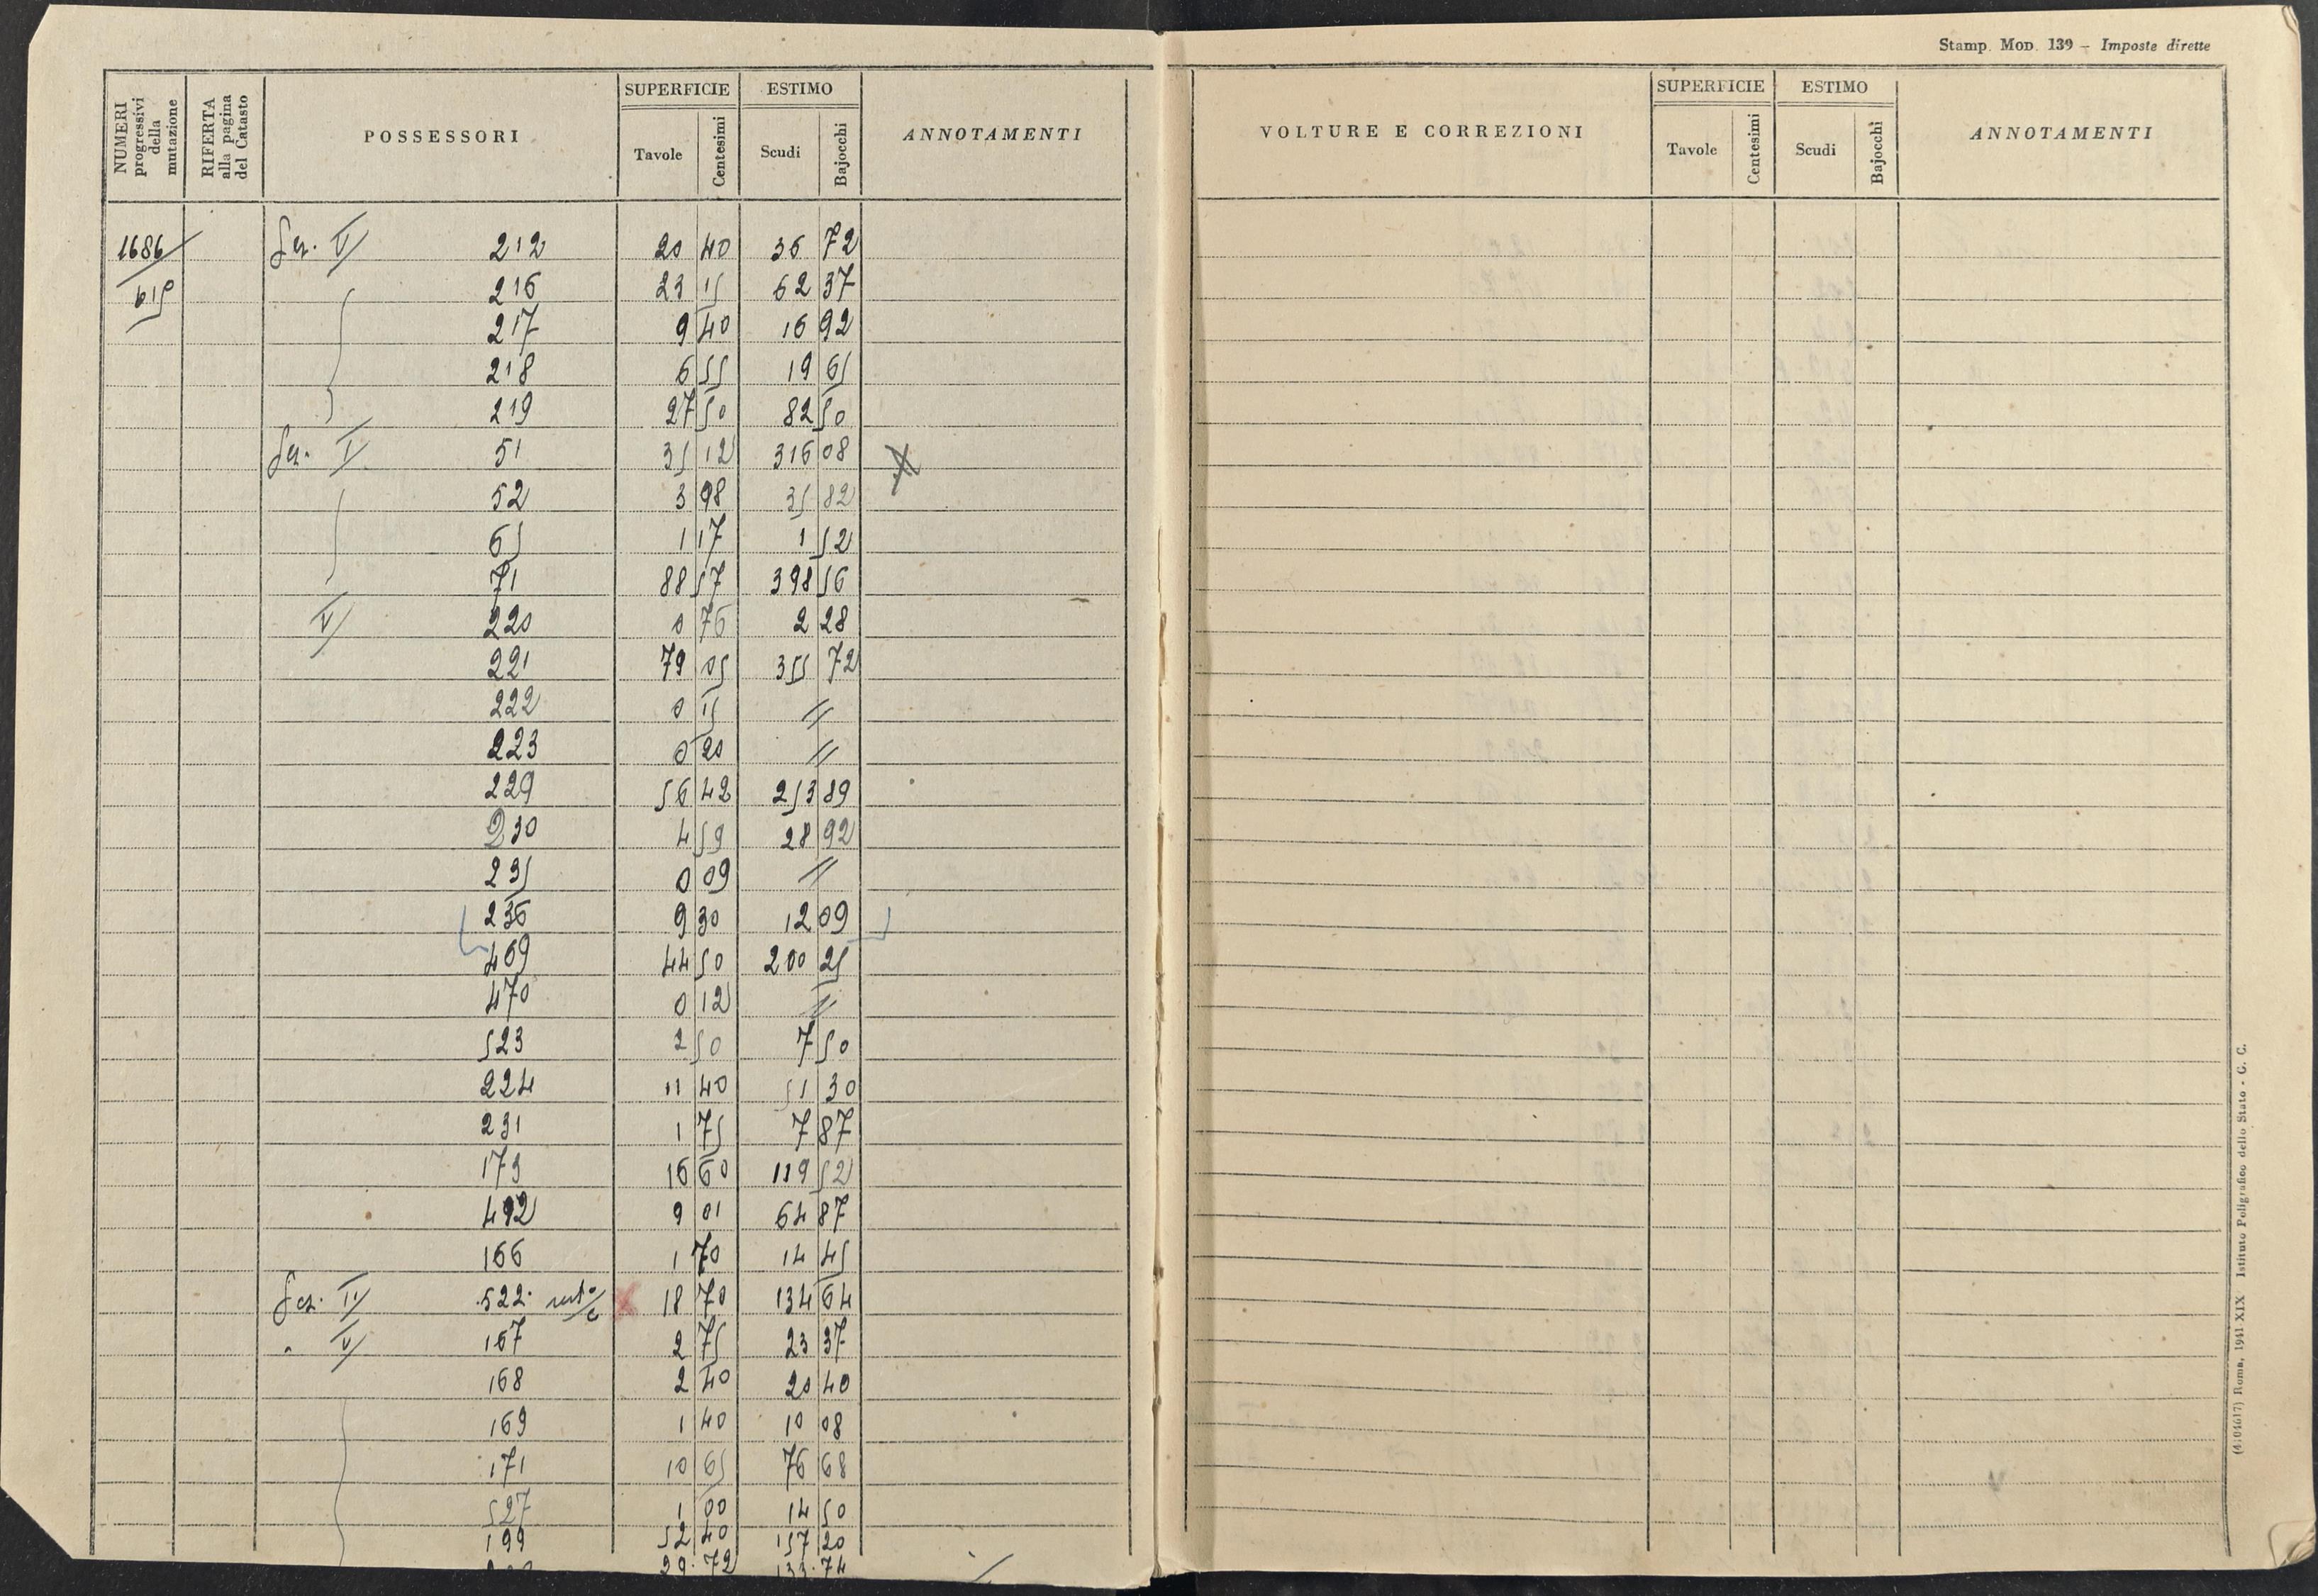 Stamp. Mod. 139 – Imposte dirette
NUMERI progressivi della mutazione
RIFERTA alla pagina del Catasto
POSSESSORI
SUPERFICIE
Tavole
Centesimi
ESTIMO
Scudi
Bajocchi
ANNOTAMENTI
VOLTURE E CORREZIONI
SUPERFICIE
Tavole
Centesimi
ESTIMO
Scudi
Bajocchi
ANNOTAMENTI
1686 Sez. V 212 20 40 36 72
615 216 23 15 62 37
217 9 40 16 92
218 6 55 19 65
219 27 50 82 50
Sez. I 51 35 12 316 08
52 3 98 35 82
65 1 17 1 52
71 88 57 398 56
V 220 0 76 2 28
221 79 05 355 72
222 0 15 //
223 0 20 //
229 56 42 253 89
230 4 59 28 92
235 0 09 //
236 9 30 12 09
469 44 50 200 25
470 0 12 //
523 2 50 7 50
224 11 40 51 30
231 1 75 7 87
173 16 60 119 52
492 9 01 64 87
166 1 70 14 45
Sez. II 522 18 70 134 64
" V 167 2 75 23 37
168 2 40 20 40
169 1 40 10 08
171 10 65 76 68
527 1 00 14 50
199 52 40 157 20
29.72 133.74
(4104617) Roma, 1941 XIX Istituto Poligrafico dello Stato - G. C.